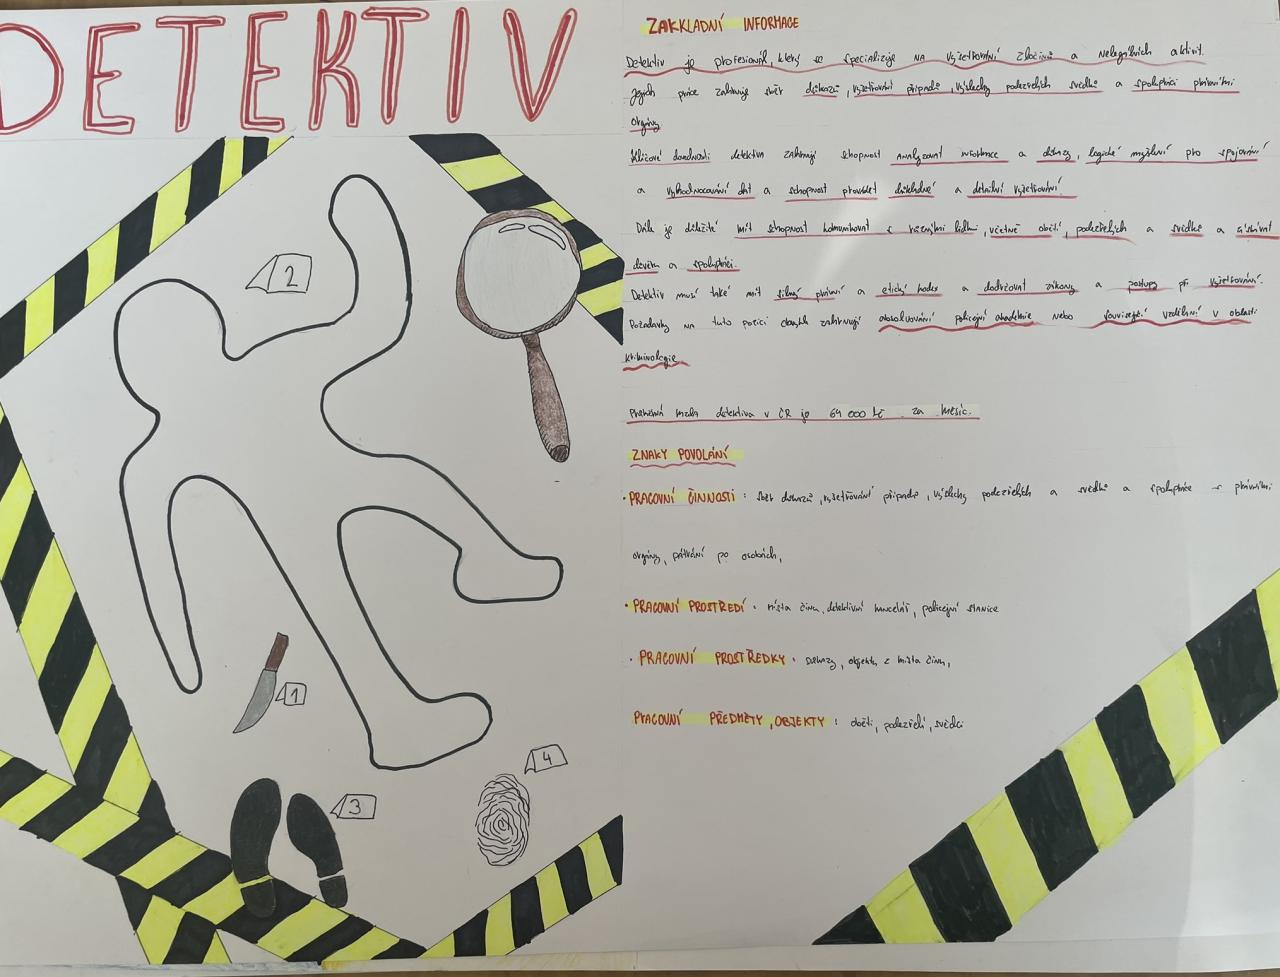 DETEKTIV
2
1
3
4
ZAKKLADNÍ INFORMACE
Detektiv je profesionál, který se specializuje na vyšetřování zločinů a nelegálních aktivit.
Jejich práce zahrnuje sběr důkazů, vyšetřování případů, výslechy podezřelých svědků a spolupráci právními
orgány
Klíčové dovednosti detektiva zahrnují schopnost analyzovat informace a důkazy, logické myšlení pro spojování
a vyhodnocování dat a schopnost provádět důkladné a detailní vyšetřování.
Dále je důležité mít schopnost komunikovat s různými lidmi, včetně obětí, podezřelých a svědků a získávat
důvěru a spolupráci.
Detektiv musí také mít silný právní a etický kodex a dodržovat zákony a postupy při vyšetřování.
Požadavky na tuto pozici obvykle zahrnují absolvování policejní akademie nebo související vzdělání v oblasti
kriminologie
Průměrná mzda detektiva v ČR je 64 000 kč za měsíc.
ZNAKY POVOLÁNÍ
• PRACOVNÍ ČINNOSTI: sběr důkazů, vyšetřování případů, výslechy podezřelých a svědků a spolupráce s právními
orgány, pátrání po osobách,
• PRACOVNÍ PROSTŘEDÍ: místa činu, detektivní kancelář, policejní stanice
• PRACOVNÍ PROSTŘEDKY: důkazy, objekty z místa činu,
PRACOVNÍ PŘEDMĚTY, OBJEKTY: oběti, podezřelí, svědci